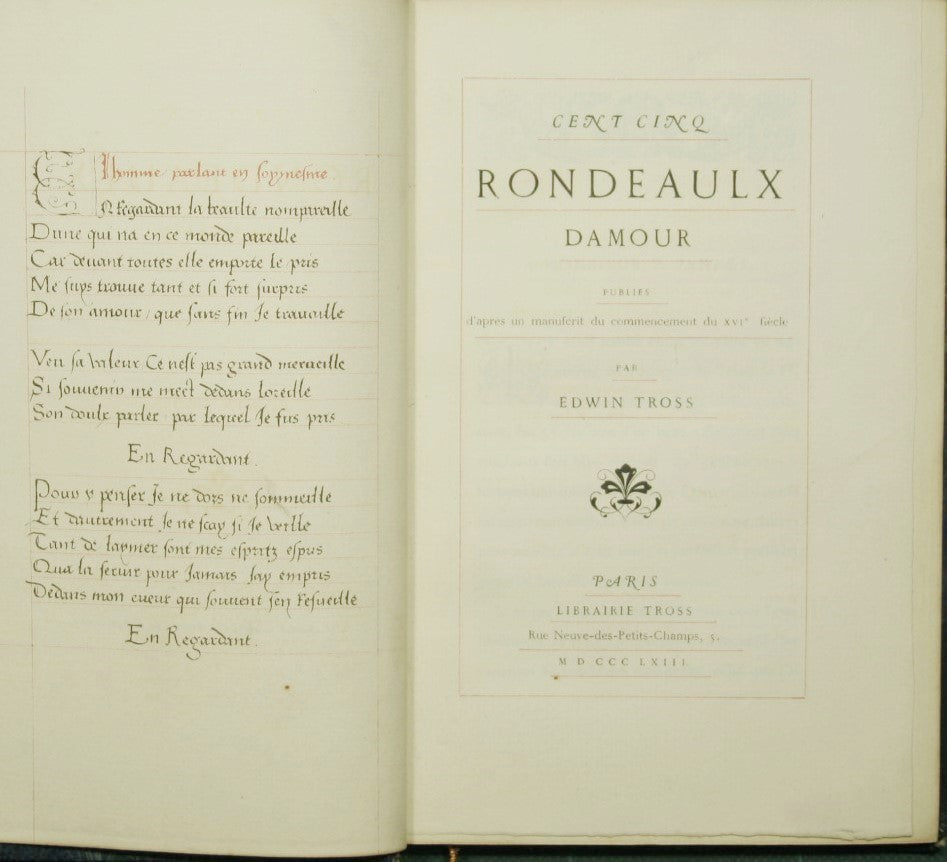 Lhomme parlant en soymesme.
EN Regardant la beaulte nompareille
Dune qui na en ce monde pareille
Car deuant toutes elle emporte le pris
Me suys trouue tant et si fort surpris
De son amour / que sans fin Je trauaille
Veu sa valeur Ce nest pas grand merueille
Si souuenir me mect dedans loreille
Son doulx parler par lequel Je fus pris
En Regardant.
Pour y penser Je ne dors ne sommeille
Et dautrement Je ne scay si Je veille
Tant de laymer sont mes espritz espris
Qua la seruir pour Jamais Jay empris
Dedans mon cueur qui souuent sen Resueille
En Regardant.
CENT CINQ
RONDEAULX
DAMOUR
PUBLIÉS
d'après un manuſcrit du commencement du XVIᵉ ſiècle
PAR
EDWIN TROSS
PARIS
LIBRAIRIE TROSS
Rue Neuve-des-Petits-Champs, 5.
M D CCC LXIII